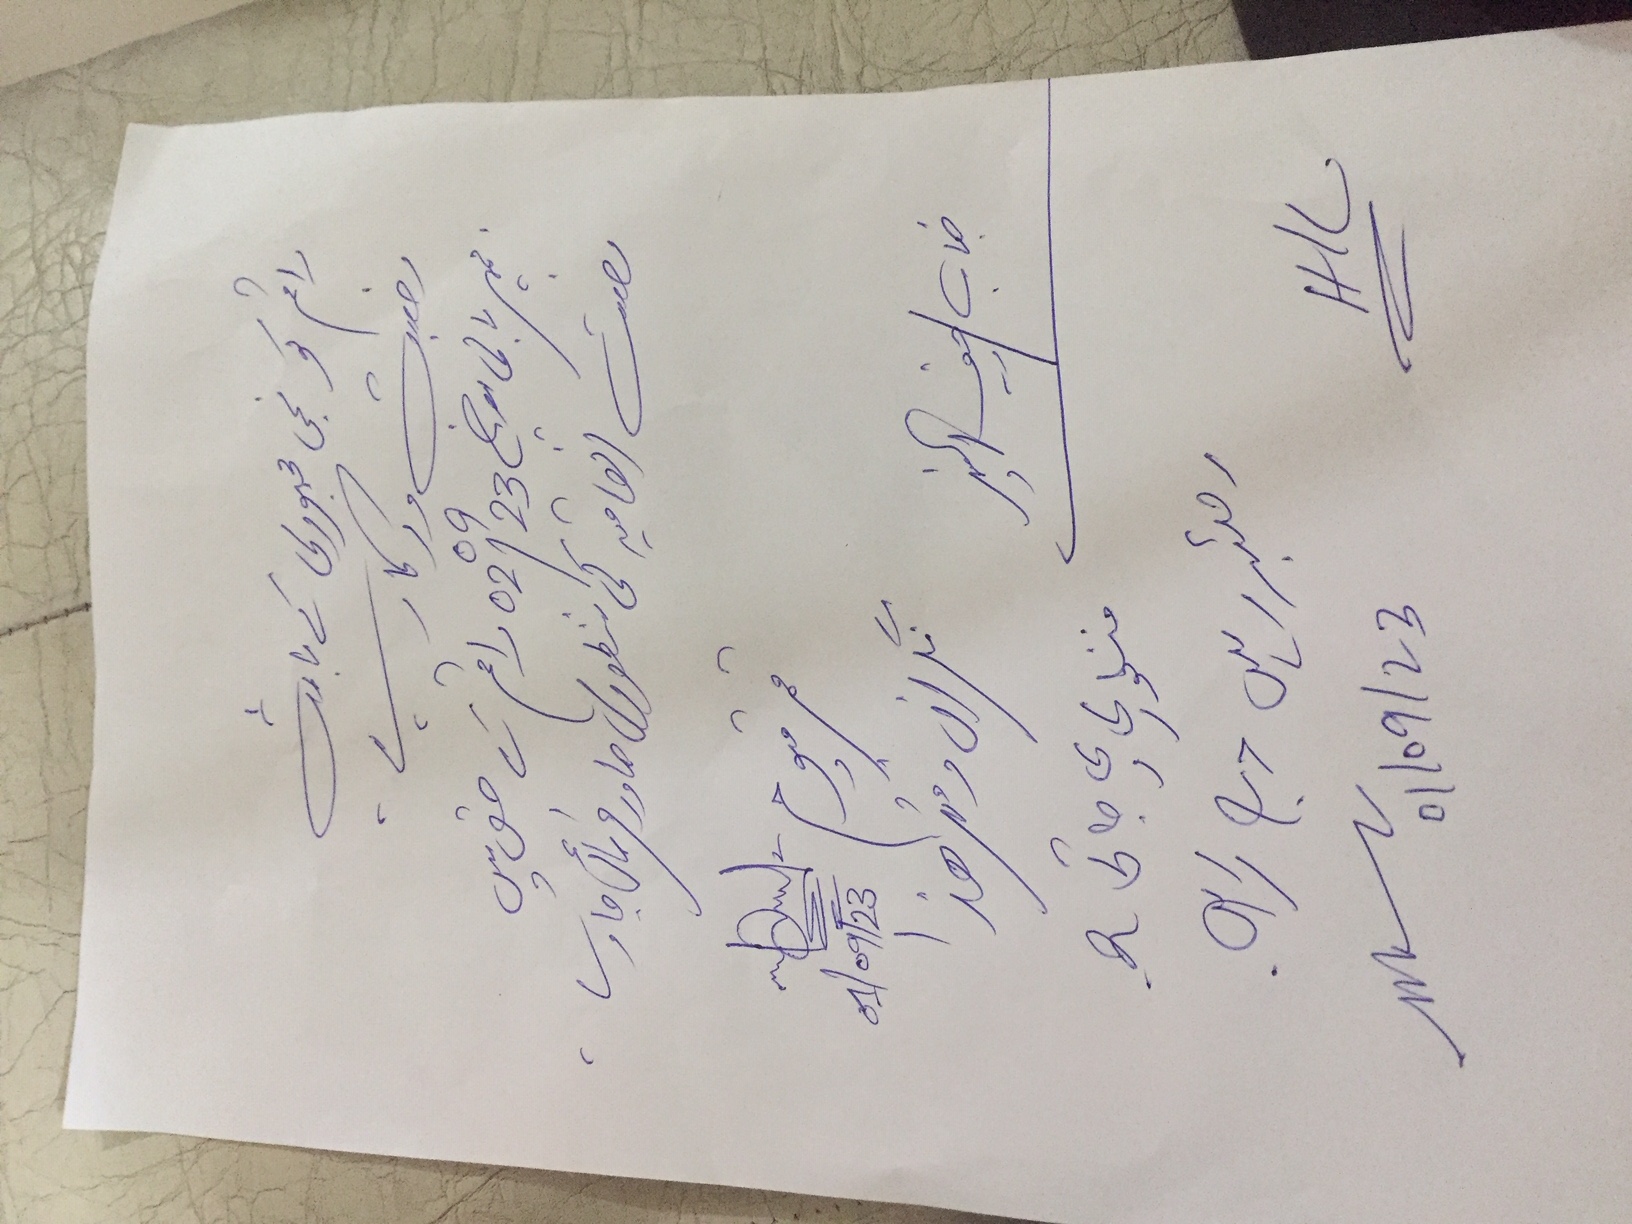 راقم کو نجی مجبوری کے باعث
رخصت درکار ہے۔
مہربانی مورخہ 02/09/23 راقم کے حق میں
رخصت اتفاقیہ کی منظوری صادر فرمائی جاوے۔
قمر قیوم
01/09/23
نگران دفتر ھذا
جناب چیف آفیسر
منظوری دی جاتی ہے.
رجسٹر میں درج کریں.
01/09/23